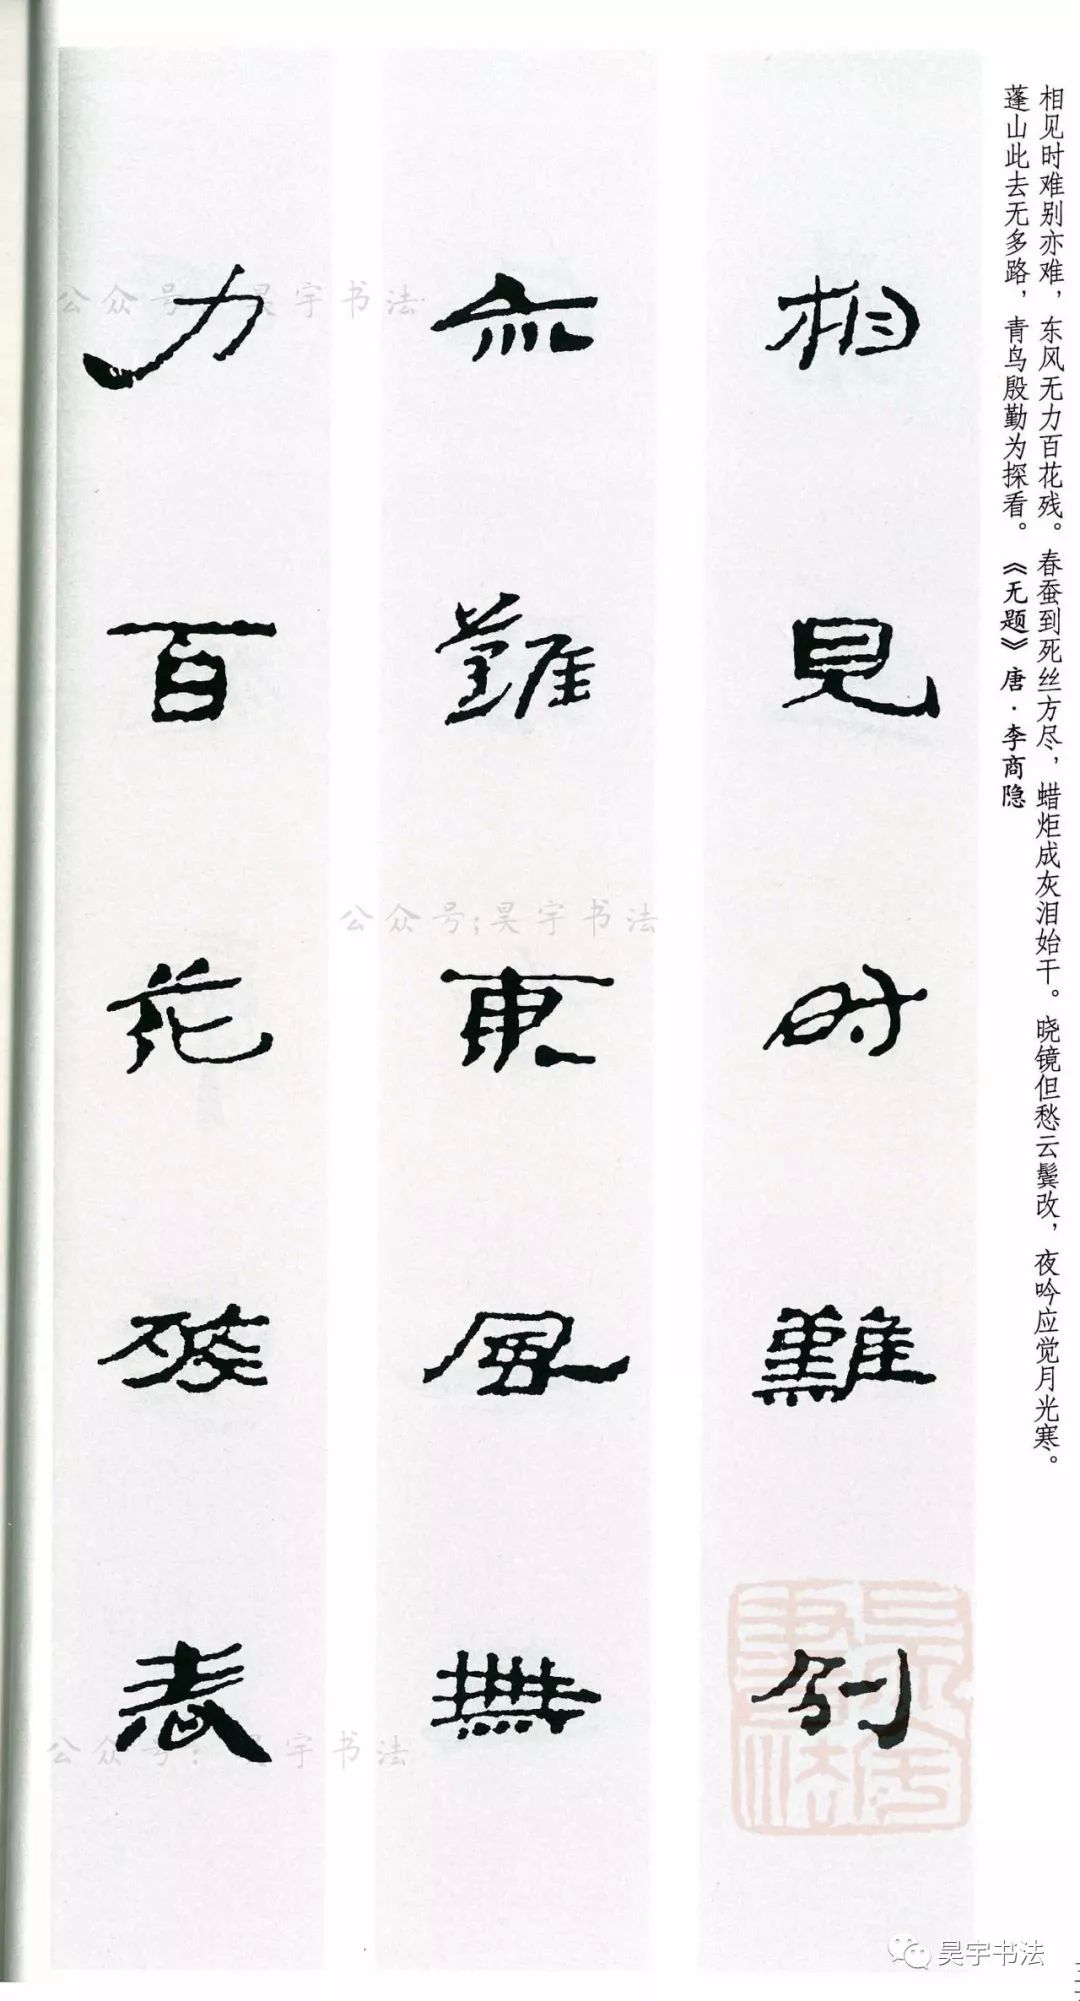 相见时难别亦难，东风无力百花残。春蚕到死丝方尽，蜡炬成灰泪始干。晓镜但愁云鬓改，夜吟应觉月光寒。
蓬山此去无多路，青鸟殷勤为探看。《无题》唐·李商隐
相見时難别
亦難東風無
力百花殘春
公众号：昊宇书法
公众号；昊宇书法
公众号：昊宇书法
昊宇书法